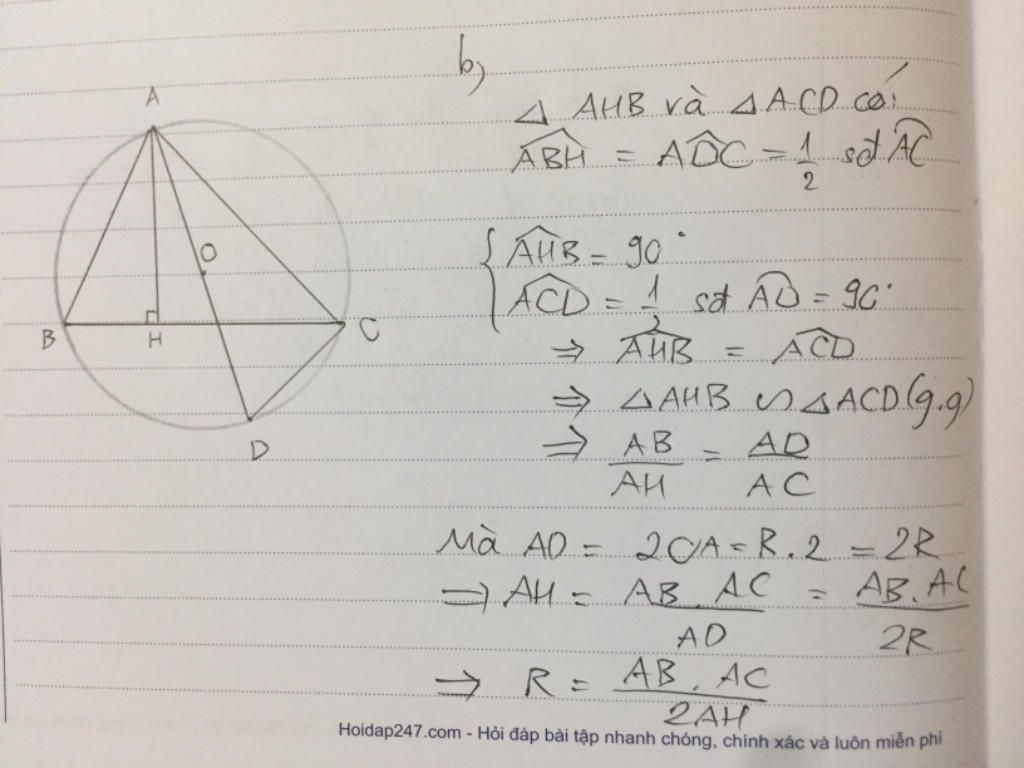 b)
△ AHB và △ ACD có:
ABH = ADC = 1/2 sđ AC
AHB = 90°
ACD = 1/2 sđ AD = 90°
⇒ AHB = ACD
⇒ △AHB ∽ △ACD (g.g)
⇒ AB/AH = AD/AC
Mà AD = 2OA = R.2 = 2R
⇒ AH = AB.AC/AD = AB.AC/2R
⇒ R = AB.AC/2AH
A
O
B H C
D
Hoidap247.com - Hỏi đáp bài tập nhanh chóng, chính xác và luôn miễn phí